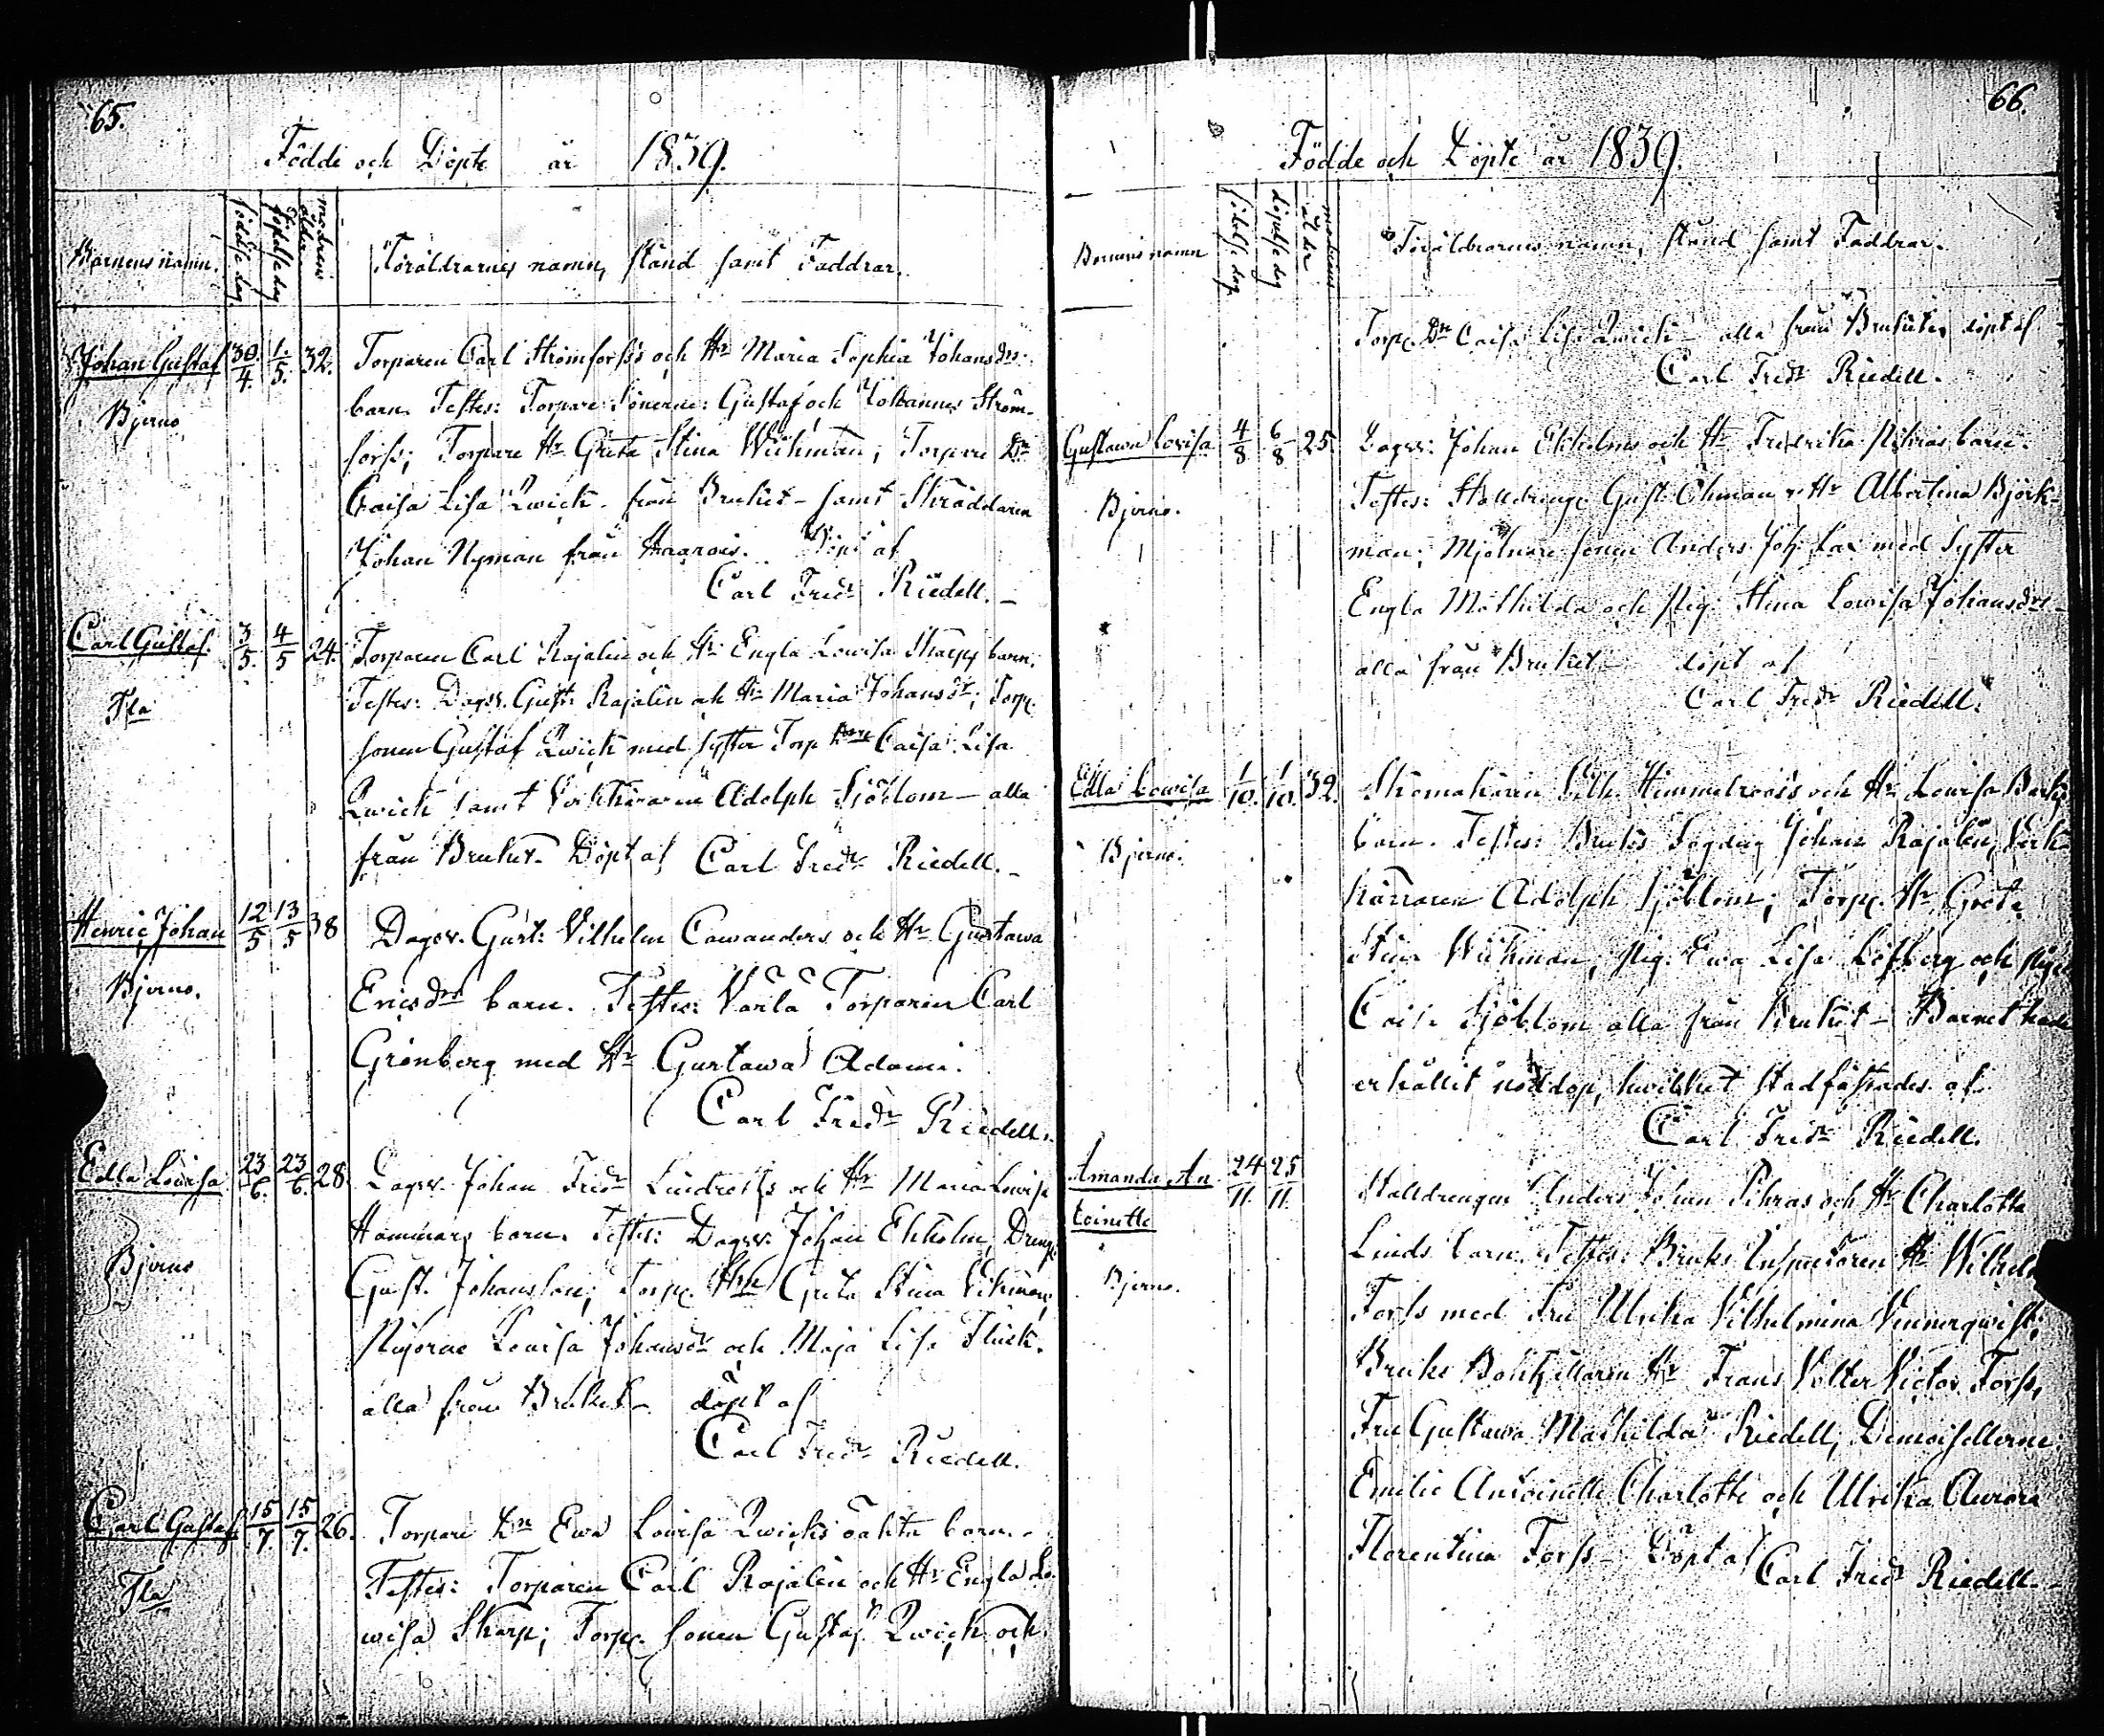 65.
Födde och Döpte år 1839.
Barnens namn.
födelse dag
döpelse dag
modrens ålder
Föräldrarnes namn, stånd samt Faddrar.
Johan Gustaf 30/4. 1/5. 32. Torparen Carl Strömforss's och Hu Maria Sophia Johansdrs
Bjerno
barn. Testes: Torpare Sönerne: Gustaf och Johannes Ström-
forss; Torpare Hu Greta Stina Wickman; Torpare Dr
Caisa Lisa Qwick från Bruket - samt Skräddaren
Johan Nyman från Haarois. Döpt af
Carl Fredr Riedell.
Carl Gustaf. 3/5. 4/5 24. Torparen Carl Rajalin och Hu Engla Lowisa Skarps barn.
Fla
Testes: Dagsv. Gust: Rajalin och Hu Maria Johansdr; Torp.
sonen Gustaf Qwick med syster Torp Caisa Lisa
Qwick samt Adolph Sjöblom - alla
från Bruket. Döpt af Carl Fredr Riedell.
Henric Johan 12/5 13/5 38 Dagsv. Gust: Vilhelm Cawanders och Hu Gustawa
Bjerno.
Ericsdrs barn. Testes: Torparen Carl
Grönberg med Hu Gustawa Adami.
Carl Fredr Riedell.
Edla Lowisa 23/6. 23/6. 28. Dagsv. Johan Fredr Lindroths och Hu Maria Lowisa
Bjerno
Hammars barn. Testes: Dagsv: Johan Ekholm, Dreng.
Gust. Johansson; Torp. Hu Greta Stina Vikman;
Pigorne Lowisa Johansdr och Maja Lisa Flinck.
alla från Bruket - döpt af
Carl Fredr Riedell.
Carl Gustaf 15/7. 15/7. 26. Torpare Dr Ewa Lowisa Qwicks oäkta barn.
Fla
Testes: Torparen Carl Rajalin och Hu Engla Lo-
wisa Skarp; Torp. sonen Gustaf Qwick och
66.
Födde och Döpte år 1839.
Barnens namn
födelse dag
döpelse dag
modrens ålder
Föräldrarnes namn, stånd samt Faddrar.
Torp. Dr Caisa Lisa Qwick - alla från Bruket, döpt af
Carl Fredr Riedell.
Gustawa Lovisa 4/8 6/8 25. Dagsv: Johan Ekholms och Hu Fredrika barn.
Bjerno.
Testes: Stalldrenge Gust. Öhman o Hu Albertina Björk-
man; Mjölnare sonen Anders Joh: Lax med Syster
Engla Mathilda och Pig. Stina Lowisa Johansdr -
alla från Bruket - döpt af
Carl Fredr Riedell.
Edla Lowisa 1/10. 1/10. 32. Skomakaren Himmelroos's och Hu Lowisa
Bjerno.
barn. Testes: Bruks Johan Rajalin,
Adolph Sjöblom; Torp. Hu Greta
Stina Wickman, Pig. Ewa Lisa Löfberg och Pigan
Caisa Sjöblom alla från Bruket - Barnet hade
erhållit nöddop, hwilket stadfästades af
Carl Fredr Riedell.
Amanda An- 24/11. 25/11. Stalldrengen Anders Johan Pihras och Hu Charlotta
toinette
Bjerno.
Linds barn. Testes: Bruks Inspectoren Hr Wilhelm
Forss med Fru Ulrika Vilhelmina Vinnerqwist;
Bruks Bokhållaren Hr Frans Volter Victor Forss,
Fru Gustawa Mathilda Riedell; Demoisellerne
Emilie Antoinette Charlotte och Ulrika Aurora
Florentina Forss - Döpt af
Carl Fredr Riedell.